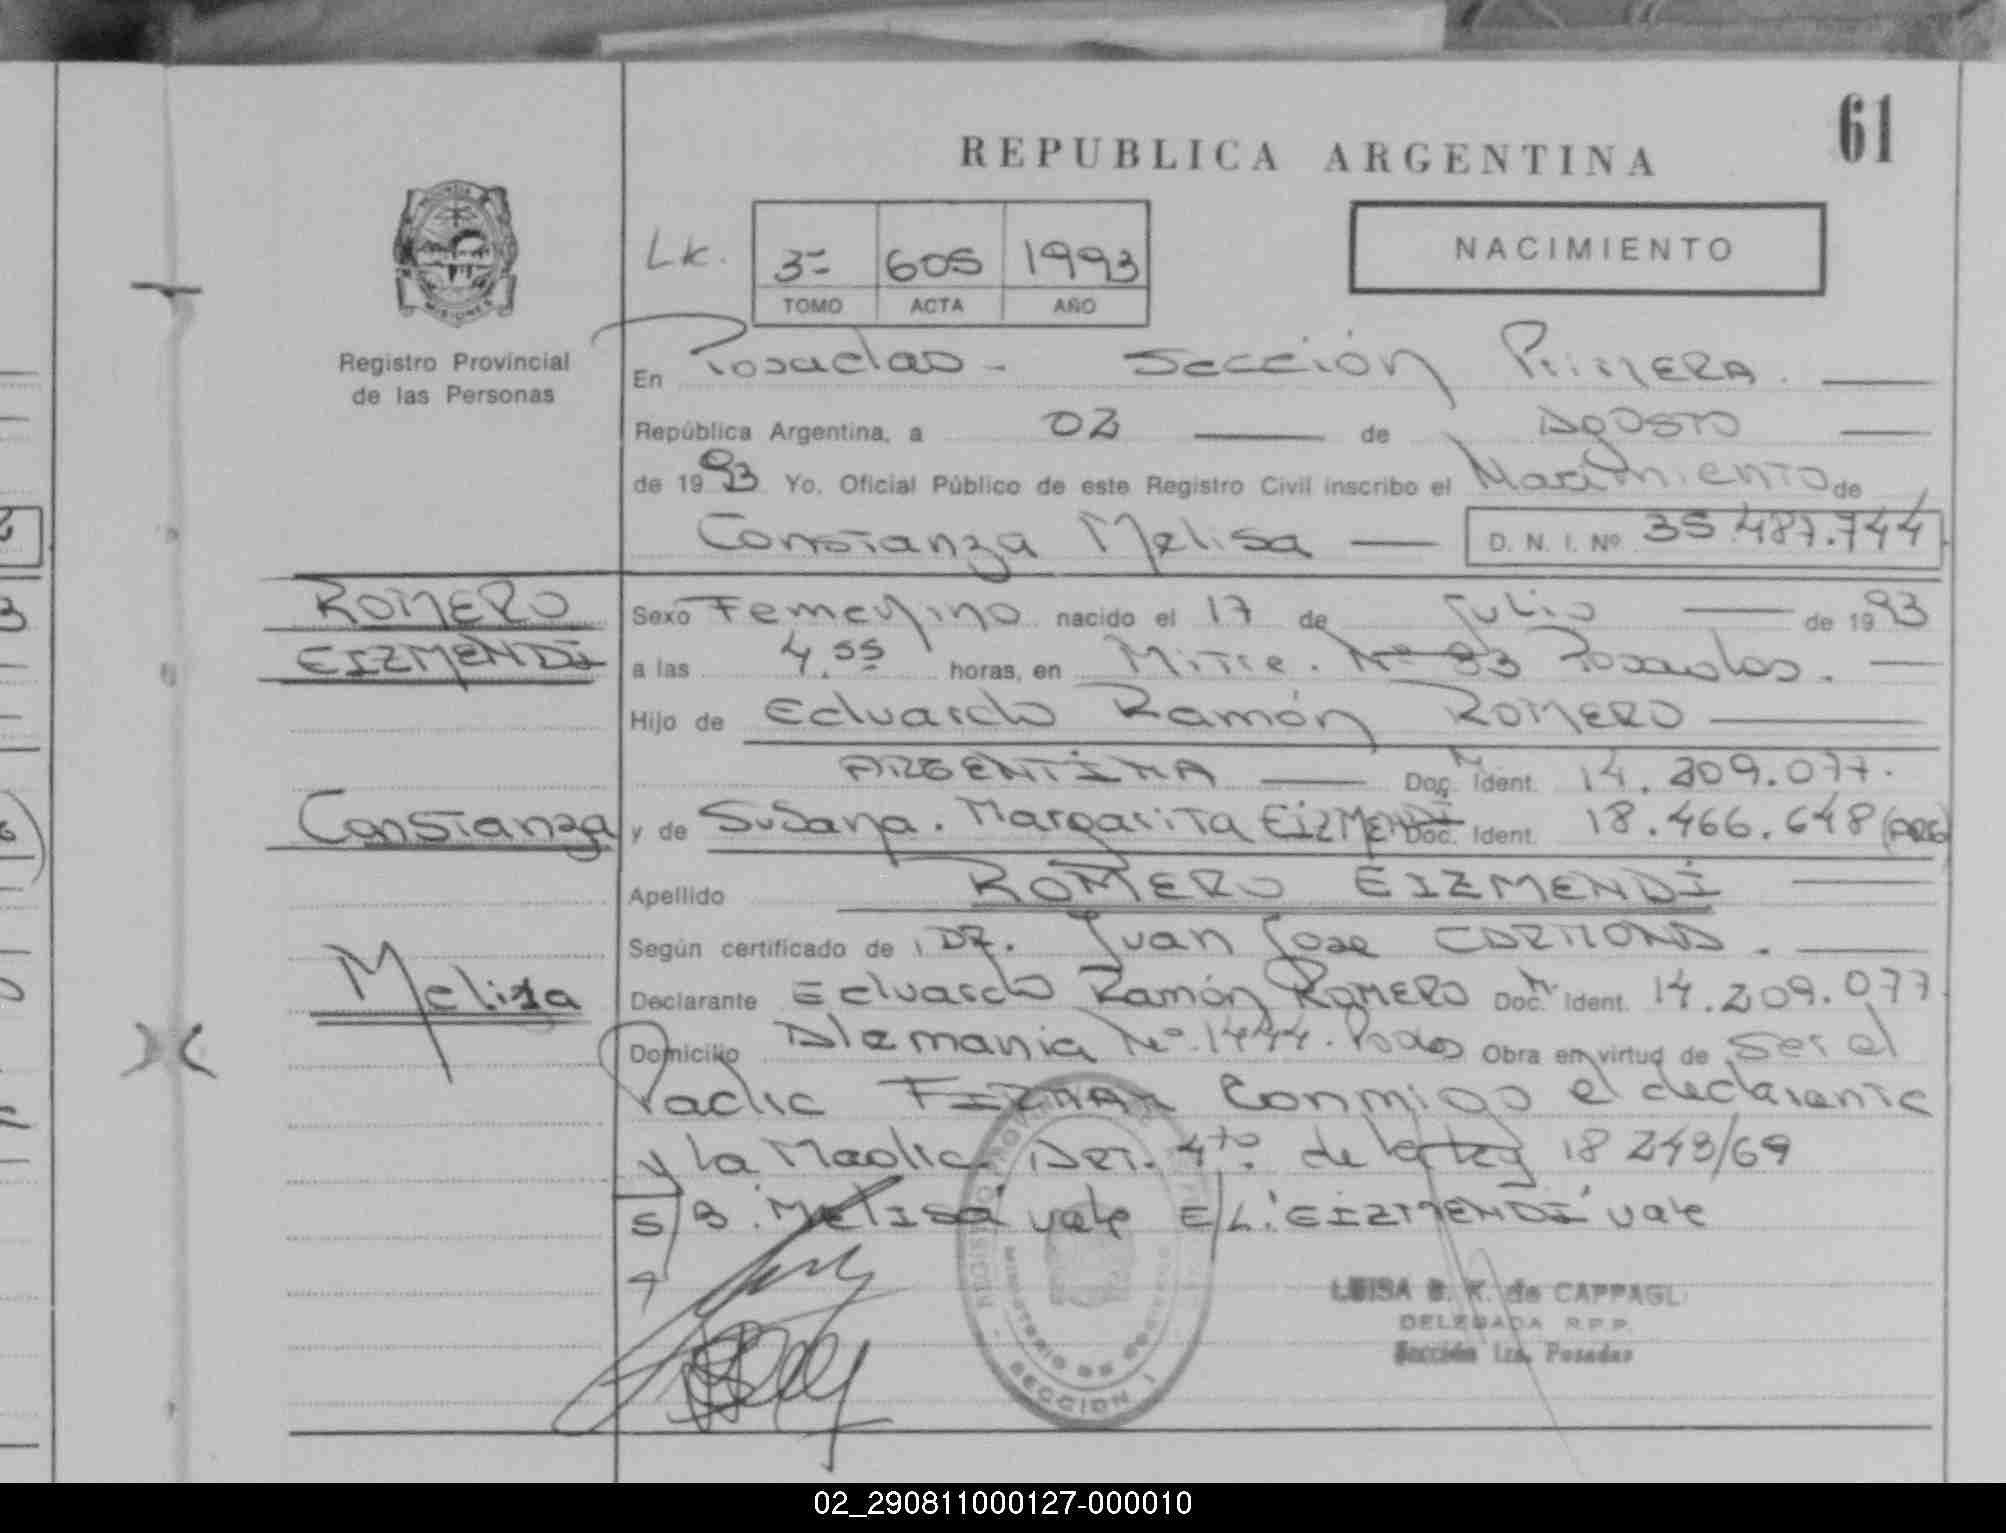 61
REPUBLICA ARGENTINA
PROVINCIA
MISIONES
Registro Provincial
de las Personas
Lk. 3= 605 1993
TOMO ACTA AÑO
NACIMIENTO
En Posadas - Sección Primera.
República Argentina, a 02 de Agosto
de 1993 Yo, Oficial Público de este Registro Civil inscribo el Nacimiento de
Constanza Melisa D. N. I. Nº 35.487.744
ROMERO
EIZMENDÍ
Constanza
Melisa
Sexo Femenino nacido el 17 de Julio de 1993
a las 4.55 horas, en Mitre. Nº 83 Posadas.
Hijo de Eduardo Ramón ROMERO
ARGENTINA Doc. N. Ident. 14.209.077.
y de Susana. Margarita EIZMENDÍ Doc. Ident. 18.466.648 (ARG
Apellido ROMERO EIZMENDÍ
Según certificado de Dr. Juan Jose CARMONA.
Declarante Eduardo Ramón ROMERO Doc. N. Ident. 14.209.077
Domicilio Alemania Nº 1444. Posdas Obra en virtud de ser el
Padre FIRMAN Conmigo el declarante
y la Madre. Art. 4to. de la Ley 18 248/69
S/B. "Melisa" vale E/L. "EIZMENDÍ" vale
REGISTRO PROVINCIAL
MINISTERIO DE GOBIERNO
SECCION 1
LUISA B. K. de CAPPAGLI
DELEGADA R.P.P.
Sección 1ra. Posadas
02_290811000127-000010